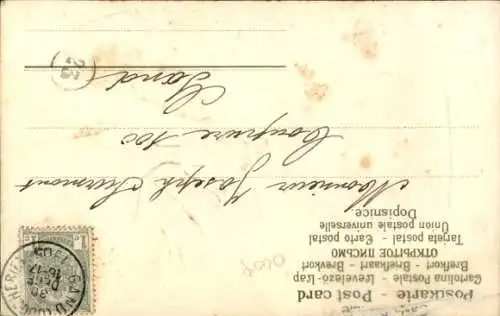 Postkarte - Post card
Cartolina Postale - Levelező-Lap
Brefkort - Briefkaart - Brevkort
ОТКРЫТОЕ ПИСЬМО
Tarjeta postal - Carto postal
Union postale universelle
Dopisnice.
Monsieur Joseph
Coupure 100
Gand